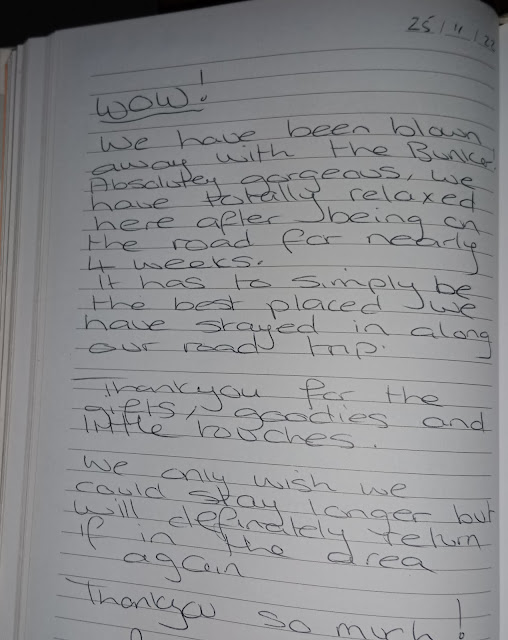 25/11/22
WOW!
We have been blown
away with the Bunker.
Absolutey gorgeous, we
have totally relaxed
here after being on
the road for nearly
4 weeks.
It has to simply be
the best placed we
have stayed in along
our road trip.
Thankyou for the
gifts, goodies and
little touches.
We only wish we
could stay longer but
will definately return
if in the area
again
Thankyou so much!